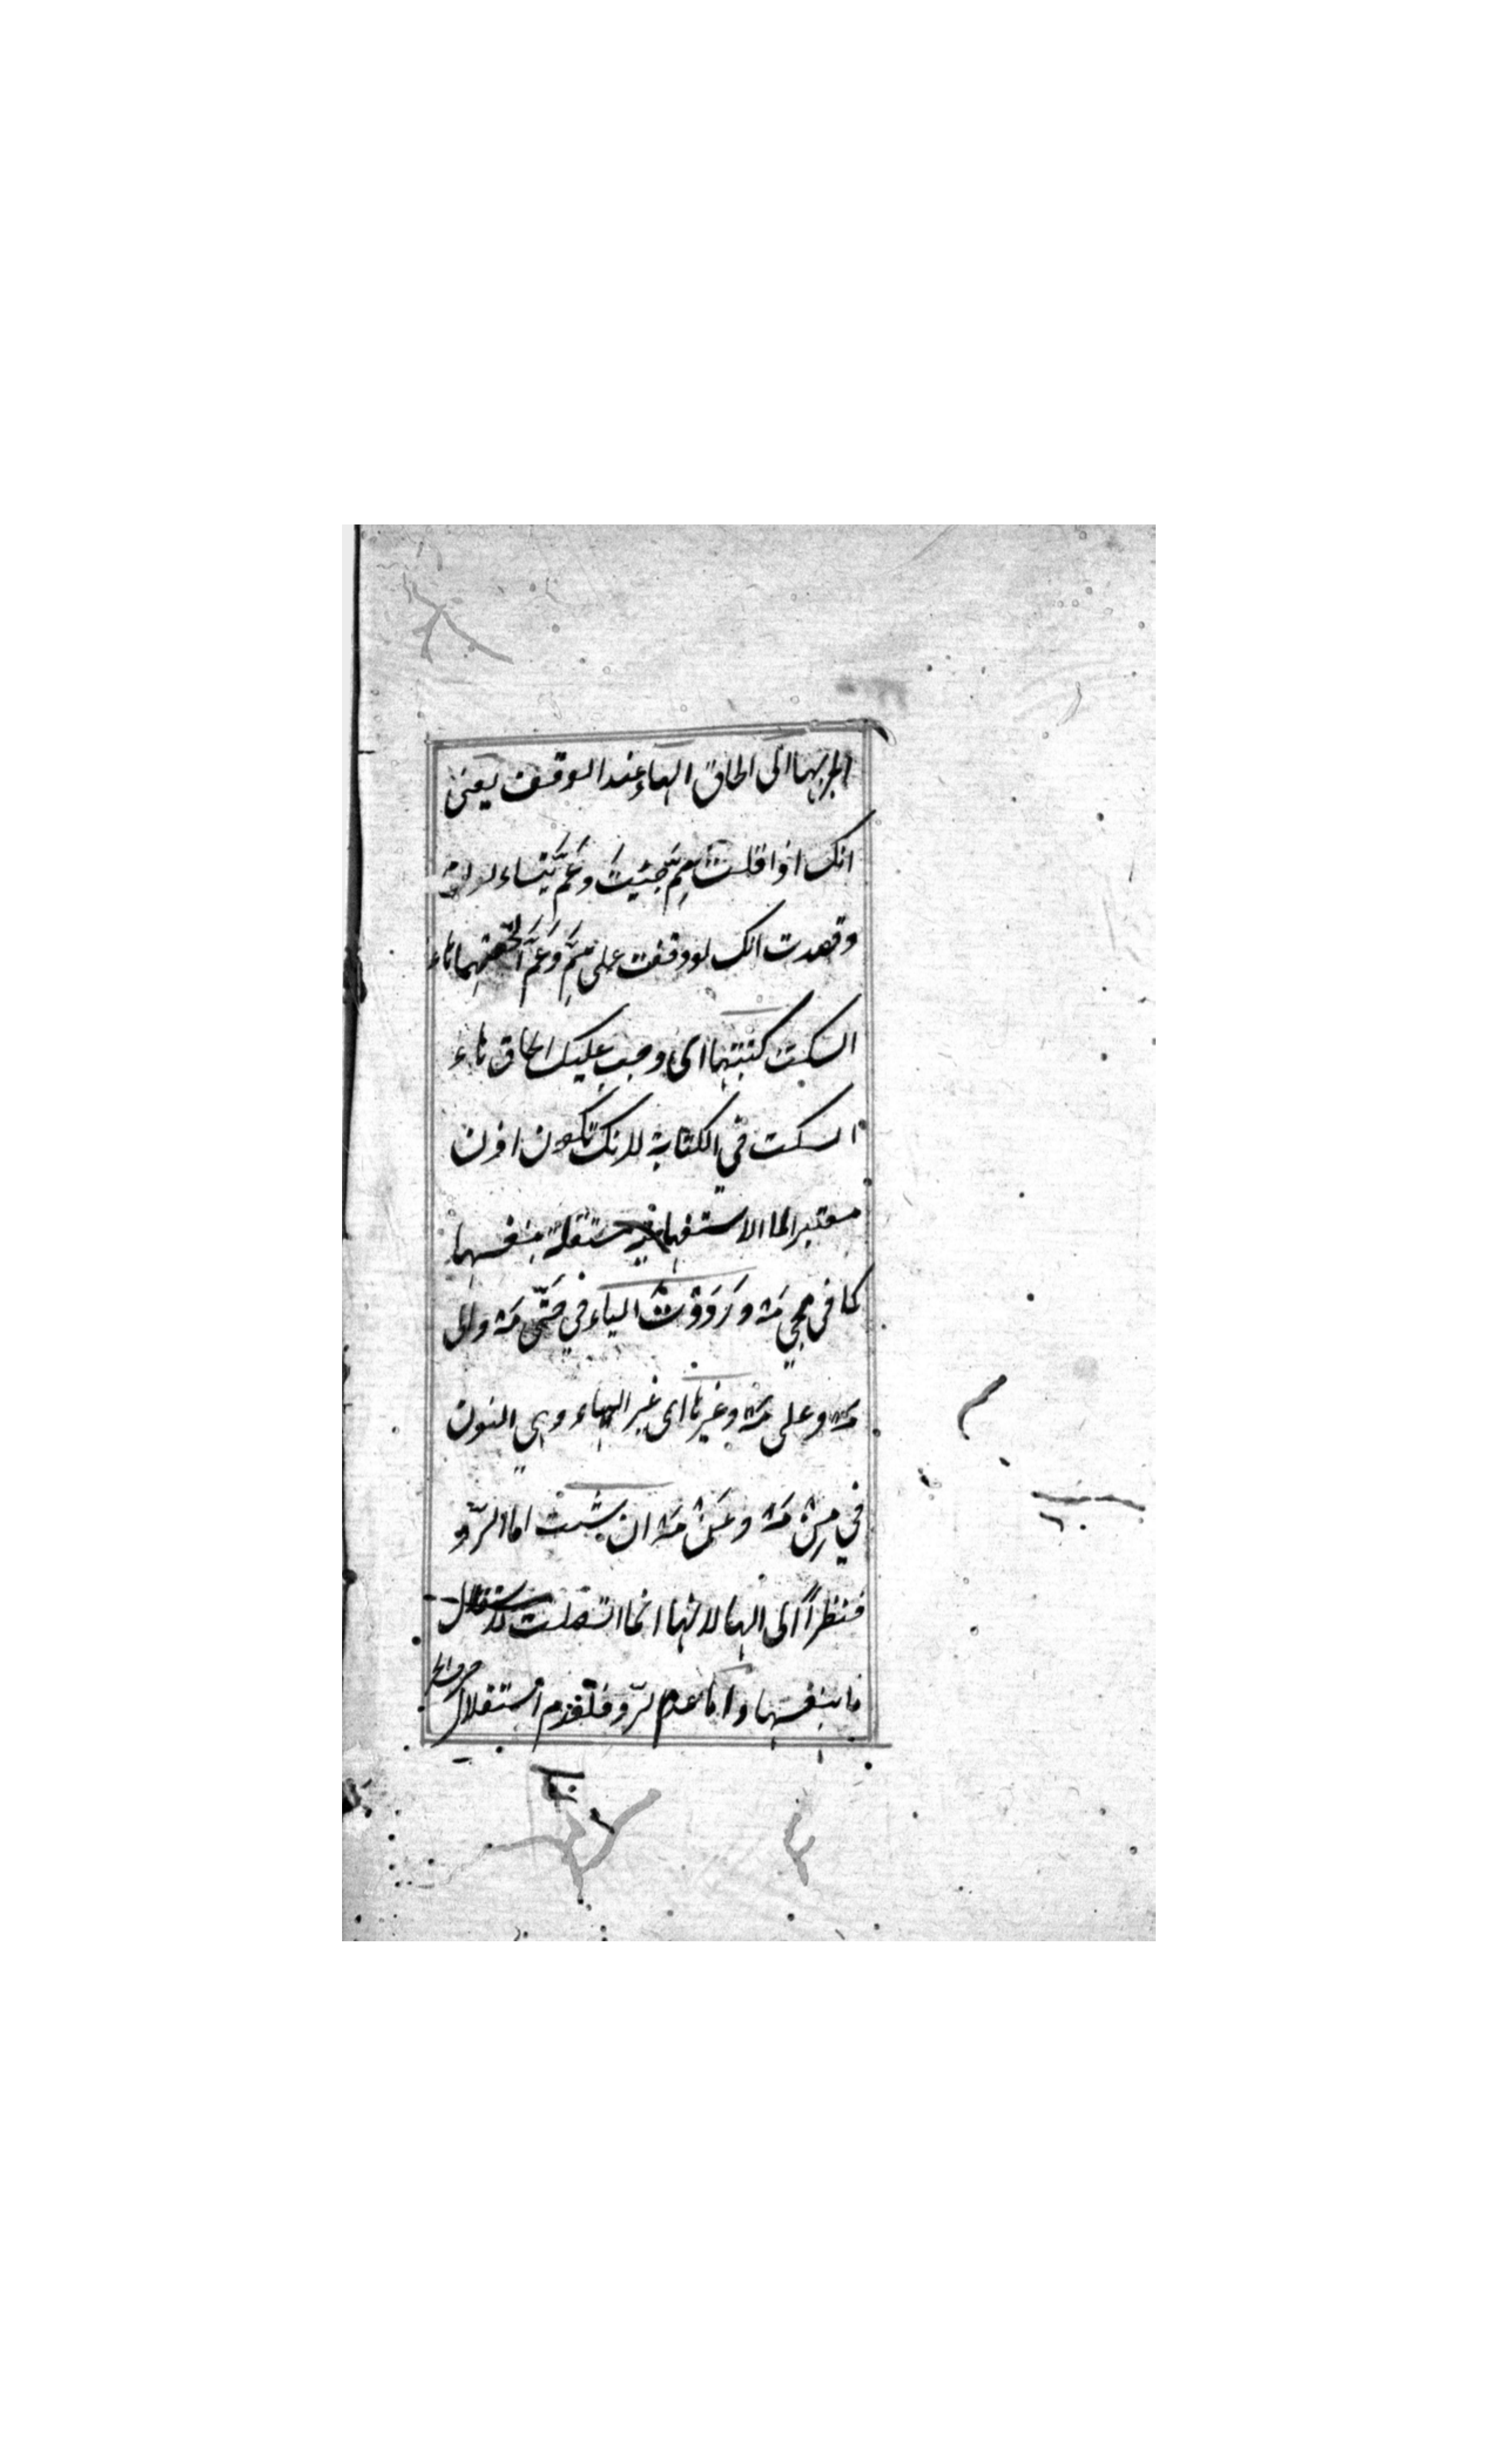 الجر بها الى الحاق الهاء عند الوقف يعنى
انك اذا قلت مِمَّ جئيتَ وعَمَّ يَتساءلون
وقصدت انك لو وقفت على مِمَّ وَعَمَّ اَلْحقتهما هاء
السكت كتبتها اى وجب عليك الحاق هاء
السكت في الكتابة لانك تكون اذن
معتبرا لما الاستفهامية مستقلة بنفسها
كما في مجي مَهْ وَرَدَدْتَ الياء في حَتّى مَهْ والى
مَهْ وعلى مَهْ وغيرها اى غير الهاء وهي النون
في مِنْ مَهْ وعَنْ مَهْ ان شئت اما الرّد
فنظراً الى الهاء لانها انما اتصلت لاستقلال
ما بنفسها واما عدم الرّد فلعدم استقلال حروف الجر